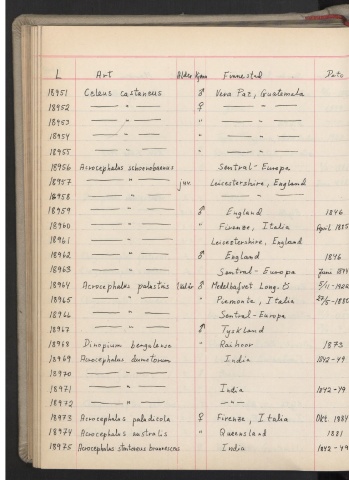 L Art Alder Kjønn Finnested Dato
18951 Celeus castaneus ♂ Vera Paz, Guatemala
18952 — " — ♀ — " —
18953 — " — " — " —
18954 — " — " — " —
18955 — " — " — " —
18956 Acrocephalus schoenobaenus Sentral-Europa
18957 — " — juv. Leicestershire, England
18958 — " —
18959 — " — ♂ England 1846
18960 — " — " Firenze, Italia April 1885
18961 — " — Leicestershire, England
18962 — " — ♂ England 1846
18963 — " — Sentral-Europa Juni
18964 Acrocephalus palustris ♂ Middelhavet Long.
18965 — " — " Piemonte, Italia
18966 — " — Sentral-Europa
18967 — " — ♂ Tyskland
18968 Dinopium bengalense " Raichoor 1873
18969 Acrocephalus dumetorum India 1842-49
18970 — " —
18971 — " — India 1842-49
18972 — " — — " —
18973 Acrocephalus paludicola ♀ Firenze, Italia Okt. 1884
18974 Acrocephalus australis " Queensland 1881
18975 Acrocephalus stentoreus brunnescens India 1842-49